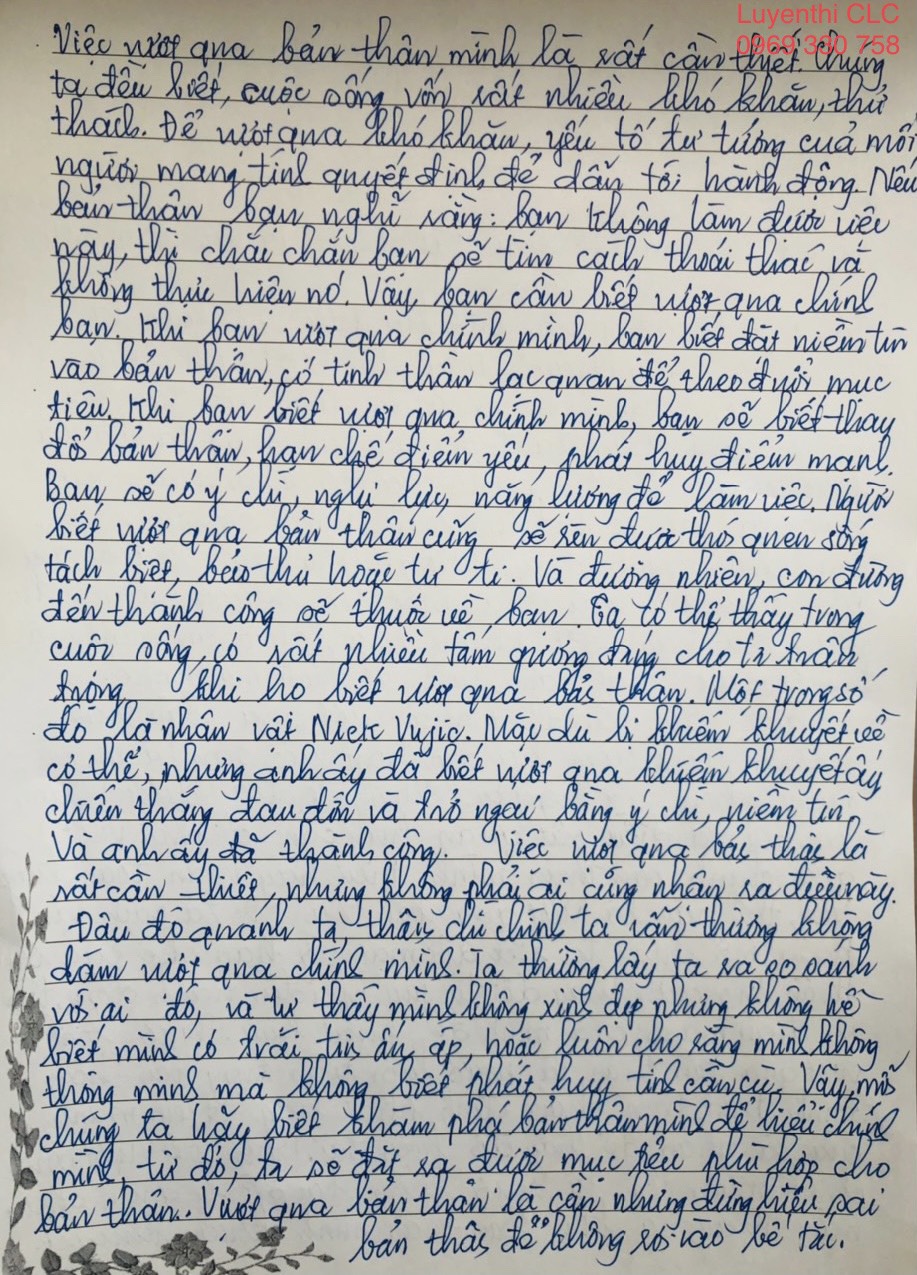 Luyenthi CLC
0969 380 758
Việc vượt qua bản thân mình là rất cần thiết. Chúng
ta đều biết, cuộc sống vốn rất nhiều khó khăn, thử
thách. Để vượt qua khó khăn, yếu tố tư tưởng của mỗi
người mang tính quyết định để dẫn tới hành động. Nếu
bản thân bạn nghĩ rằng: bạn không làm được việc
này, thì chắc chắn bạn sẽ tìm cách thoái thác và
không thực hiện nó. Vậy, bạn cần biết vượt qua chính
bạn. Khi bạn vượt qua chính mình, bạn biết đặt niềm tin
vào bản thân, có tinh thần lạc quan để theo đuổi mục
tiêu. Khi bạn biết vượt qua chính mình, bạn sẽ biết thay
đổi bản thân, hạn chế điểm yếu, phát huy điểm mạnh.
Bạn sẽ có ý chí, nghị lực, năng lượng để làm việc. Người
biết vượt qua bản thân cũng sẽ rèn được thói quen sống
tách biệt, bảo thủ hoặc tự ti. Và đương nhiên, con đường
đến thành công sẽ thuộc về bạn. Ta có thể thấy trong
cuộc sống, có rất nhiều tấm gương đáng cho ta trân
trọng khi họ biết vượt qua bản thân. Một trong số
đó là nhân vật Nick Vujic. Mặc dù bị khiếm khuyết về
cơ thể, nhưng anh ấy đã biết vượt qua khiếm khuyết ấy
chiến thắng đau đớn và trở ngại bằng ý chí, niềm tin
Và anh ấy đã thành công. Việc vượt qua bản thân là
rất cần thiết, nhưng không phải ai cũng nhận ra điều này.
Đâu đó quanh ta, thậm chí chính ta vẫn thường không
dám vượt qua chính mình. Ta thường lấy ta ra so sánh
với ai đó, và tự thấy mình không xinh đẹp nhưng không hề
biết mình có trái tim ấm áp, hoặc luôn cho rằng mình không
thông minh mà không biết phát huy tính cần cù. Vậy, mỗi
chúng ta hãy biết khám phá bản thân mình để hiểu chính
mình, từ đó, ta sẽ đặt ra được mục tiêu phù hợp cho
bản thân. Vượt qua bản thân là cần nhưng đừng hiểu sai
bản thân để không rơi vào bế tắc.